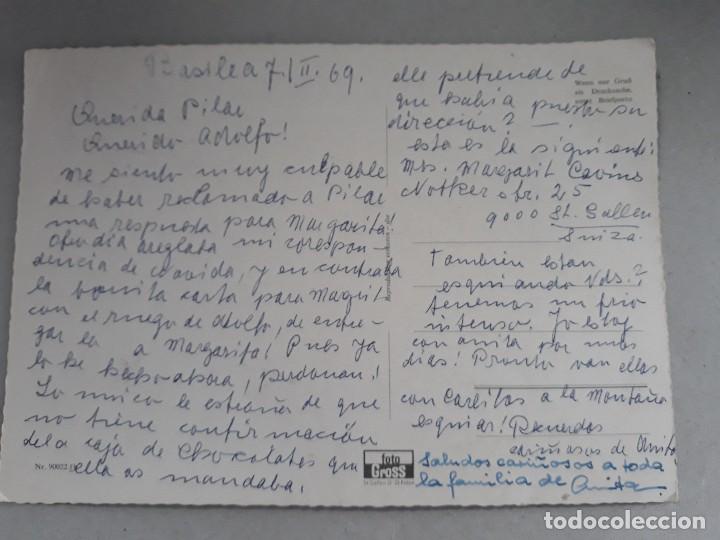 Basilea 7/II.69.
Querida Pilar
Querido Adolfo!
Me siento muy culpable
de haber reclamado a Pilar
una respuesta para Margarita!
Otro dia areglata mi corespon-
dencia de covida, y encontraba
la bonita carta para Magrit
con el ruego de Adolfo, de entre-
gar la a Margarita! Pues ya
lo he hecho ahora, perdonan!
Lo unico le estraña de que
no tiene confirmación
dela caja de chocolates que
ella as mandaba.
Nr. 90022
foto
Gross
elle pretende de
que habia puesto su
direcciòn?
esta es la siguiente:
Mrs. Margarit Cavins
Notkerstr. 25
9000 St. Gallen
Suiza.
Wenn nur Gruß
als Drucksache,
sonst Briefporto
Tambien estan
esquiando Vds.?
tenemos un frio
intenso. Yo estoy
con anita por unos
dias! Pronto van ellas
con Carlitos a la Montaña
esquiar! Recuerdos
cariñosos de
Saludos cariñosos a toda
la familia de Anita
todocoleccion
todocoleccion.net